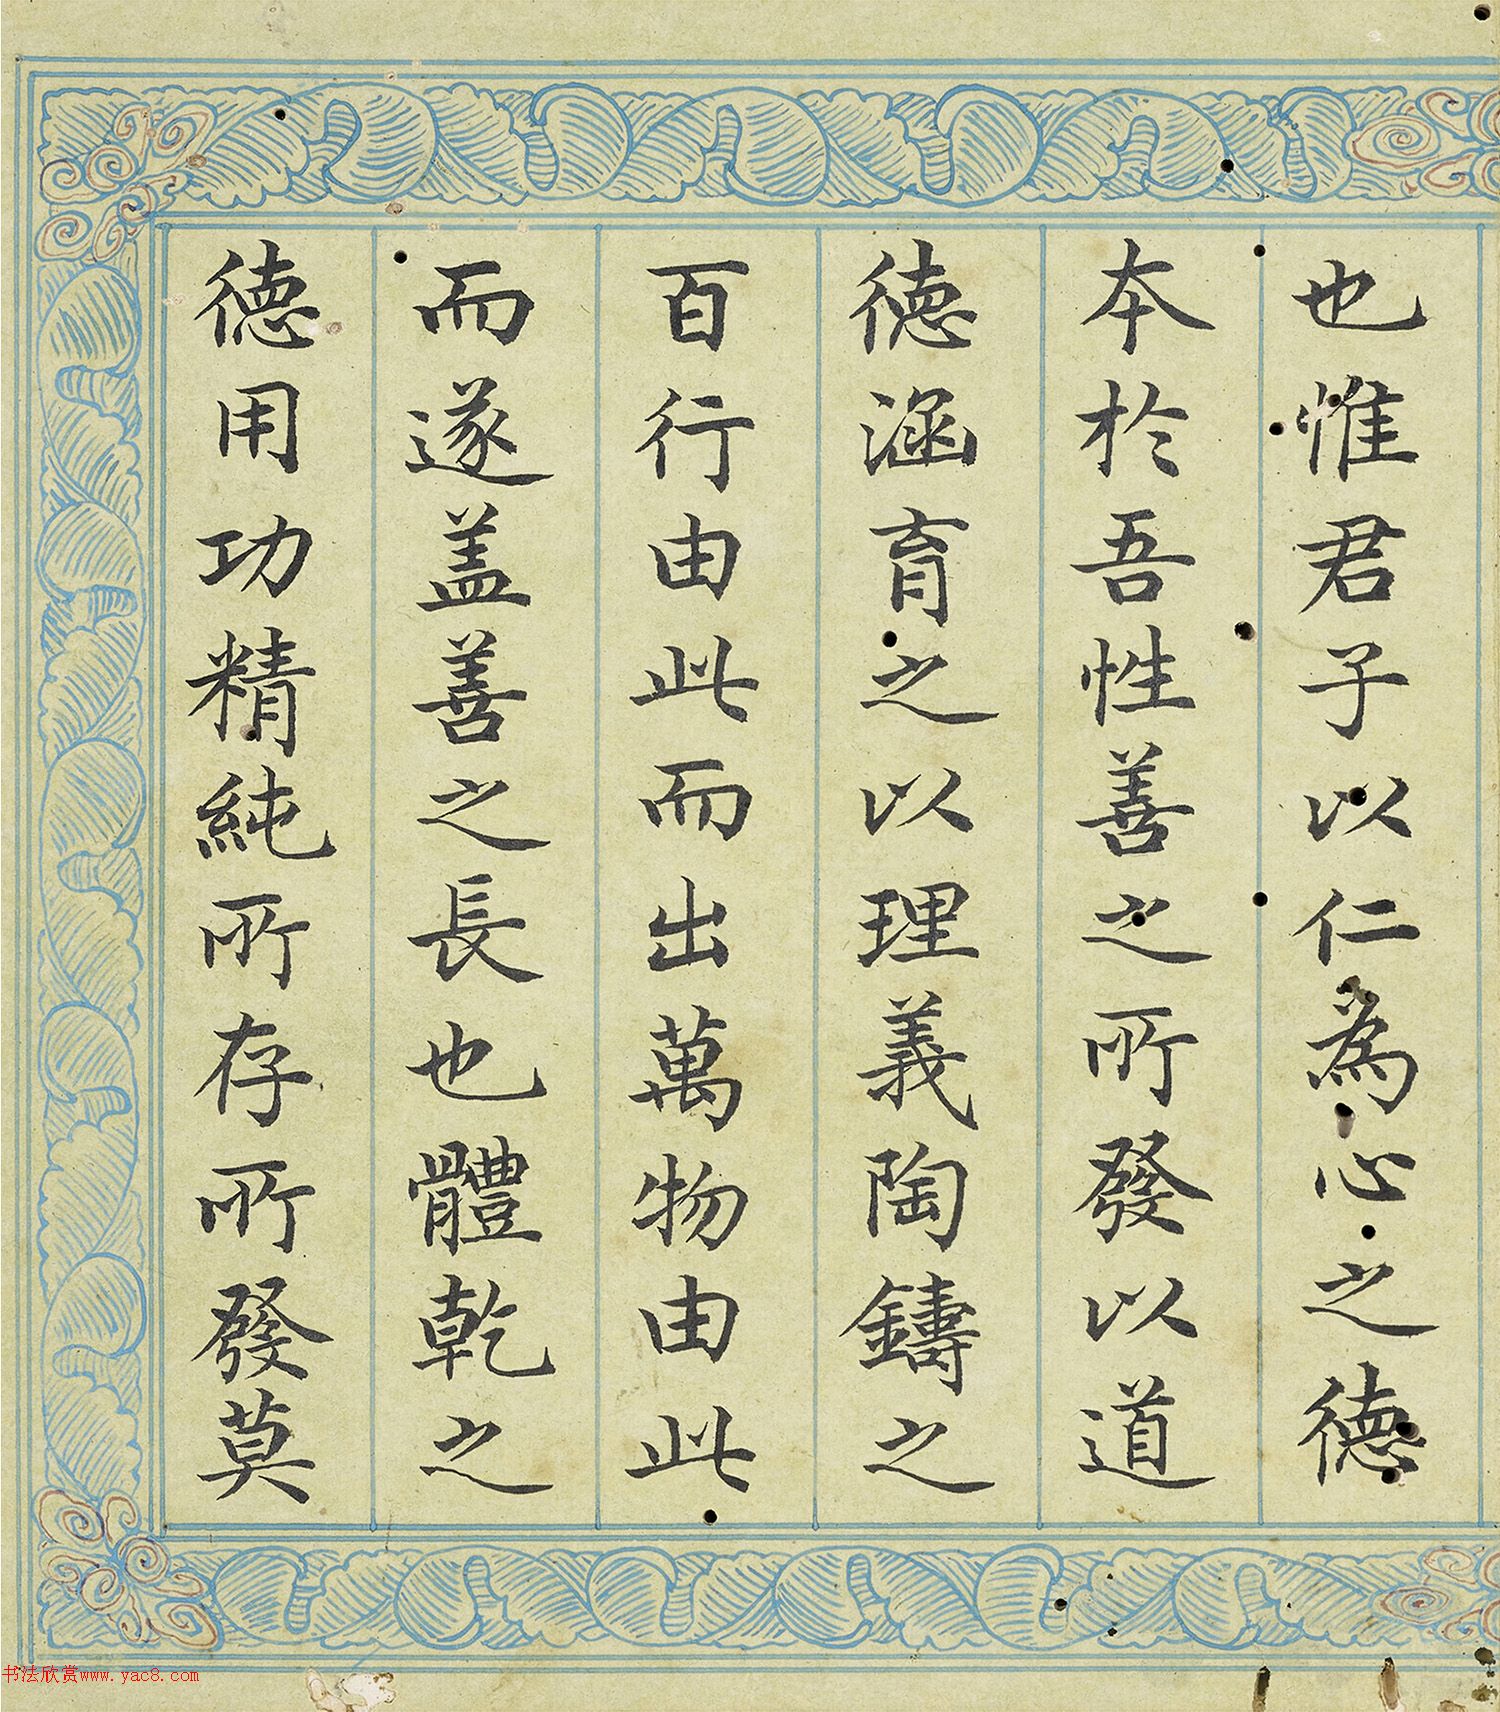 也惟君子以仁為心之德
本於吾性善之所發以道
德涵育之以理義陶鑄之
百行由此而出萬物由此
而遂盖善之長也體乾之
德用功精純所存所發莫
书法欣赏www.yac8.com